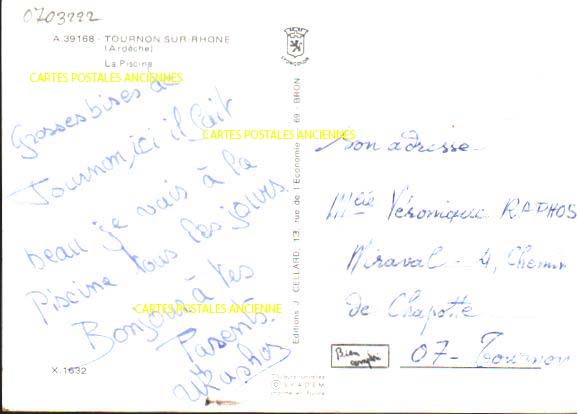 0703222
A 39168 - TOURNON SUR RHONE
(Ardèche)
La Piscine
CARTES POSTALES ANCIENNES
Grosses bises de
CARTES POSTALES ANCIENNES
Tournon, ici il fait
beau je vais à la
Piscine tous les jours.
CARTES POSTALES ANCIENNE
Bonjour à tes
Parents.
X. 1632
Editions J. CELLARD, 13, rue de l'Economie 69 - BRON
Mon adresse
Mlle Véronique RAPHOS
Miraval - 4, Chemin
de Chapotte
07 - Tournon
Bien